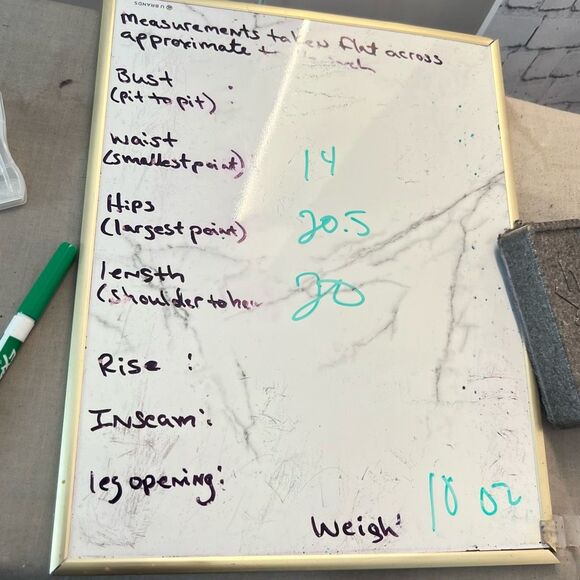 U BRANDS
Measurements taken flat across
approximate
Bust
(pit to pit)
waist
(smallest point) 14
Hips
(largest point) 20.5
length
(shoulder to 20
Rise :
Inseam:
leg opening:
Weigh 10 oz